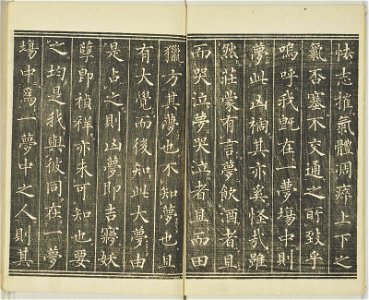 怯志摧氣體凋瘁上下之
氣否塞不交通之所致乎
嗚呼我既在一夢場中則
夢此凶禍其亦奚怪哉雖
然莊蒙有言夢飲酒者旦
而哭泣夢哭泣者旦而田
獵方其夢也不知夢也且
有大覺而後知此大夢由
是占之則凶夢即吉寤妖
孽即禎祥亦未可知也要
之均是我與彼同在一夢
場中爲一夢中之人則其